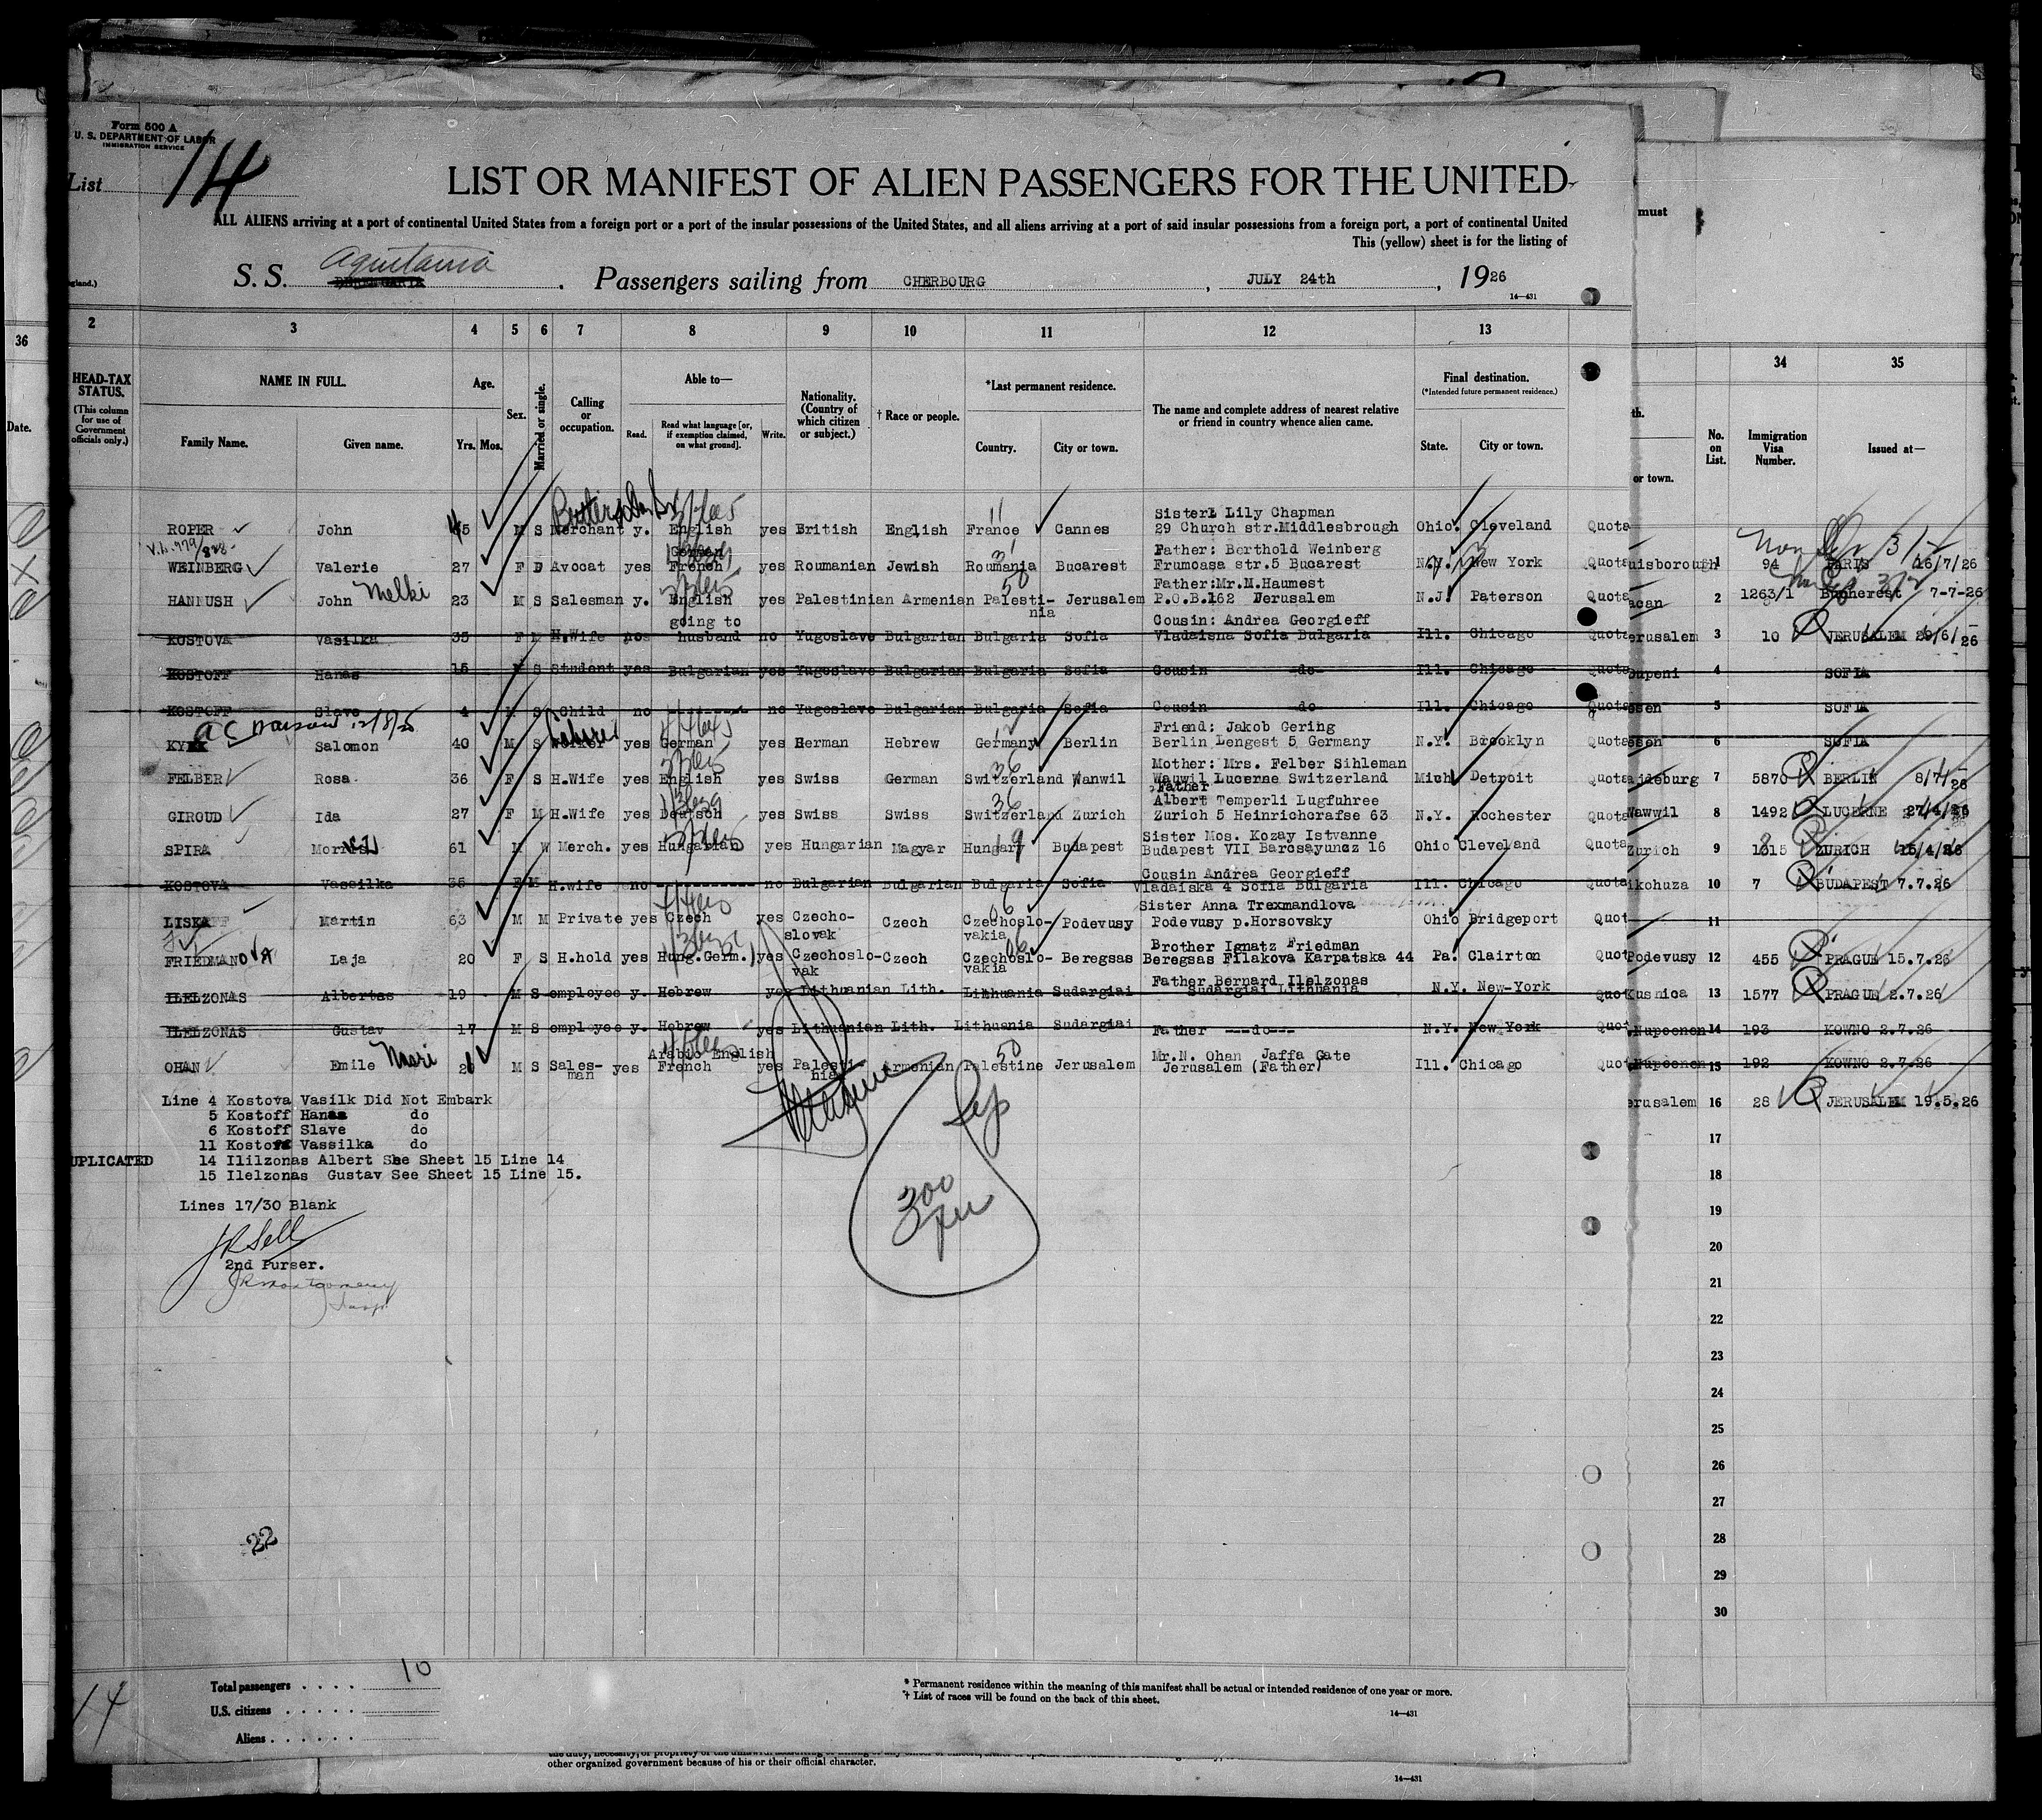 Form 500 A
U. S. DEPARTMENT OF LABOR
IMMIGRATION SERVICE
List 14
LIST OR MANIFEST OF ALIEN PASSENGERS FOR THE UNITED
ALL ALIENS arriving at a port of continental United States from a foreign port or a port of the insular possessions of the United States, and all aliens arriving at a port of said insular possessions from a foreign port, a port of continental United
This (yellow) sheet is for the listing of
must
gland.) S. S. Aquitania BERENGARIA . Passengers sailing from CHERBOURG , JULY 24th , 1926
14—431
36 2 3 4 5 6 7 8 9 10 11 12 13 34 35
HEAD-TAX STATUS.
(This column for use of Government officials only.)
NAME IN FULL.
Family Name. Given name.
Age.
Yrs. Mos.
Sex.
Married or single.
Calling or occupation.
Able to—
Read. Read what language [or, if exemption claimed, on what ground]. Write.
Nationality. (Country of which citizen or subject.)
† Race or people.
*Last permanent residence.
Country. City or town.
The name and complete address of nearest relative or friend in country whence alien came.
Final destination.
(*Intended future permanent residence.)
State. City or town.
Date.
th.
or town.
No. on List.
Immigration Visa Number.
Issued at—
Sister: Lily Chapman
ROPER John 45 M S Merchant y. English yes British English France Cannes 29 Church str.Middlesbrough Ohio. Cleveland Quota
German Father: Berthold Weinberg
WEINBERG Valerie 27 F D Avocat yes French yes Roumanian Jewish Roumania Bucarest Frumoasa str.5 Bucarest N.Y. New York Quota uisborough 1 94 PARIS 16/7/26
Father:Mr.M.Haumest
HANNUSH John Melki 23 M S Salesman y. English yes Palestinian Armenian Palesti- Jerusalem P.O.B.162 Jerusalem N.J. Paterson Quota acan 2 1263/1 Bucherest 7-7-26
going to nia Cousin: Andrea Georgieff
KOSTOVA Vasilka 35 F M H.Wife husband no Yugoslave Bulgarian Bulgaria Sofia Vladaisna Sofia Bulgaria Ill. Chicago Quota erusalem 3 10 JERUSALEM 29/6/26
KOSTOFF Hanas 15 S Student yes Bulgarian yes Yugoslave Bulgarian Bulgaria Sofia Cousin -do- Ill. Chicago Quota oupeni 4 SOFIA
KOSTOFF Slave 4 S Child no no Yugoslave Bulgarian Bulgaria Sofia Cousin do Ill. Chicago Quota esen 5 SOFIA
Friend: Jakob Gering
Salomon 40 M S Worker yes German yes German Hebrew Germany Berlin Berlin Lengest 5 Germany N.Y. Brooklyn Quota esen 6 SOFIA
Mother: Mrs. Felber Sihleman
FELBER Rosa 36 F S H.Wife yes English yes Swiss German Switzerland Wanwil Wauwil Lucerne Switzerland Mich Detroit Quota ajdeburg 7 5870 BERLIN 8/7/26
Father
Albert Temperli Lugfuhree
GIROUD Ida 27 F M H.Wife yes Deutsch yes Swiss Swiss Switzerland Zurich Zurich 5 Heinrichcrafse 63 N.Y. Rochester Quota Wawwil 8 1492 LUCERNE 27/4/26
Sister Mos. Kozay Istvanne
SPIRA 61 M W Merch. yes Hungarian yes Hungarian Magyar Hungary Budapest Budapest VII Barcsayuncz 16 Ohio Cleveland Quota Zurich 9 1315 ZURICH 15/4/26
Cousin Andrea Georgieff
KOSTOVA Vassilka 35 F M H.wife no ----------- no Bulgarian Bulgarian Bulgaria Sofia Vladaiska 4 Sofia Bulgaria Ill. Chicago Quota ikohuza 10 7 BUDAPEST 7.7.26
Sister Anna Trexmandlova
LISKA Martin 63 M M Private yes Czech yes Czecho- Czech Czechoslo- Podevusy Podevusy p.Horsovsky Ohio Bridgeport Quot 11
slovak vakia
Brother Ignatz Friedman
FRIEDMANOVA Laja 20 F S H.hold yes Hung.Germ. yes Czechoslo- Czech Czechoslo- Beregsas Beregsas Filakova Karpatska 44 Pa. Clairton Quot Podevusy 12 455 PRAGUE 15.7.26
vak vakia
Father Bernard Ilelzonas
ILELZONAS Albertas 19 M S employee y. Hebrew yes Lithuanian Lith. Lithuania Sudargiai Sudargiai Lithuania N.Y. New-York Quot Kusnica 13 1577 PRAGUE 2.7.26
ILELZONAS Gustav 17 M S employee y. Hebrew yes Lithuanian Lith. Lithuania Sudargiai Father ---do--- N.Y. New York Quot Nupeenen 14 193 KOWNO 2.7.26
Arabic English
OHAN Emile Nasri 26 M S Sales- yes French yes Palesti Armenian Palestine Jerusalem Mr.N. Ohan Jaffa Gate Ill. Chicago Quot Nupeenen 15 192 KOWNO 2.7.26
man nia Jerusalem (Father)
erusalem 16 28 JERUSALEM 19.5.26
Line 4 Kostova Vasilk Did Not Embark
5 Kostoff Hanas do
6 Kostoff Slave do
11 Kostoff Vassilka do
UPLICATED 14 Ililzonas Albert See Sheet 15 Line 14
15 Ilelzonas Gustav See Sheet 15 Line 15.
Lines 17/30 Blank
J R Sell
2nd Purser.
J R Montgomery
Insp
300
17
18
19
20
21
22
23
24
25
26
27
28
29
30
22
Total passengers . . . . 10
U.S. citizens . . . . .
Aliens . . . . . .
14
* Permanent residence within the meaning of this manifest shall be actual or intended residence of one year or more.
† List of races will be found on the back of this sheet.
14—431
other organized government because of his or their official character.
14—431